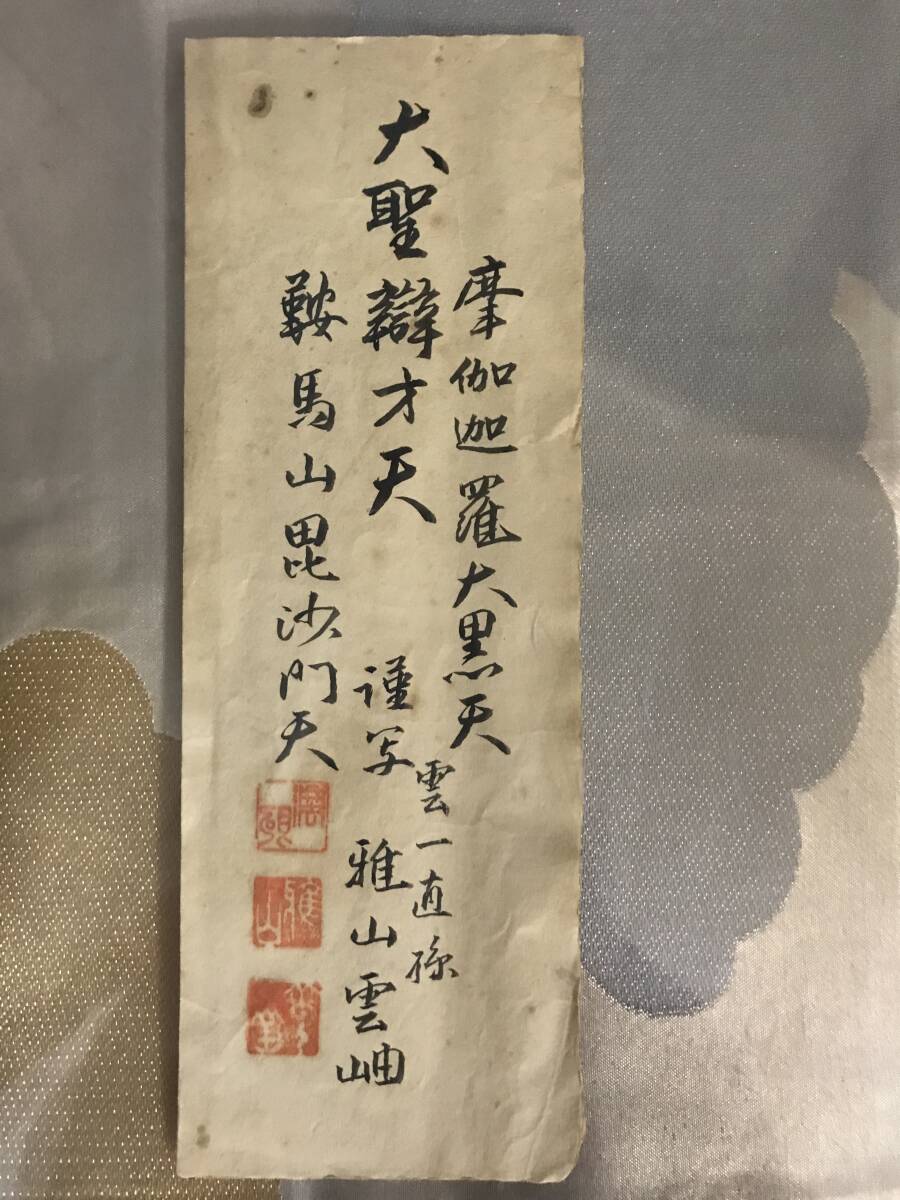 摩伽迦羅大黒天
大聖辯才天
鞍馬山毘沙門天
謹写
雲一直孫
雅山雲岫
雅山